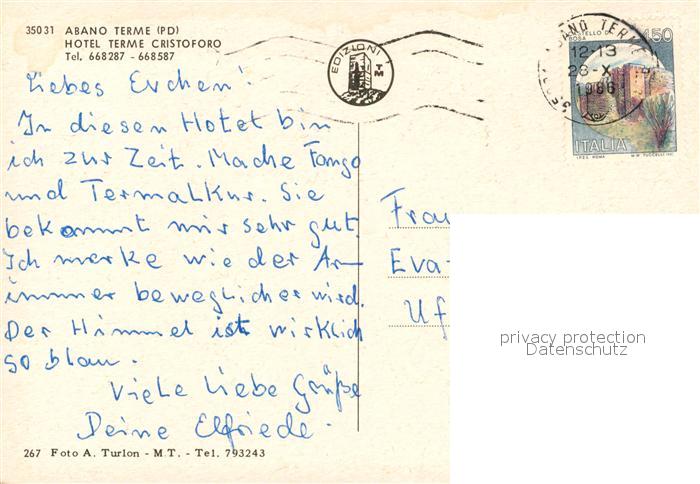 35031 ABANO TERME (PD)
HOTEL TERME CRISTOFORO
Tel. 668287 - 668587
EDIZIONI
TM
ABANO TERME
12-13
28-X
1986
450
ITALIA
I.P.Z.S. ROMA M.M. TUCCELLI
Liebes Evchen!
In diesen Hotel bin
ich zur Zeit. Mache Fango
und TermalKur. Sie
bekommt mir sehr gut.
Ich merke wie der Arm
immer beweglicher wird.
Der Himmel ist wirklich
so blau.
Viele liebe Grüße
Deine Elfriede.
Frau
Eva-
Uf
privacy protection
Datenschutz
267 Foto A. Turlon - M.T. - Tel. 793243